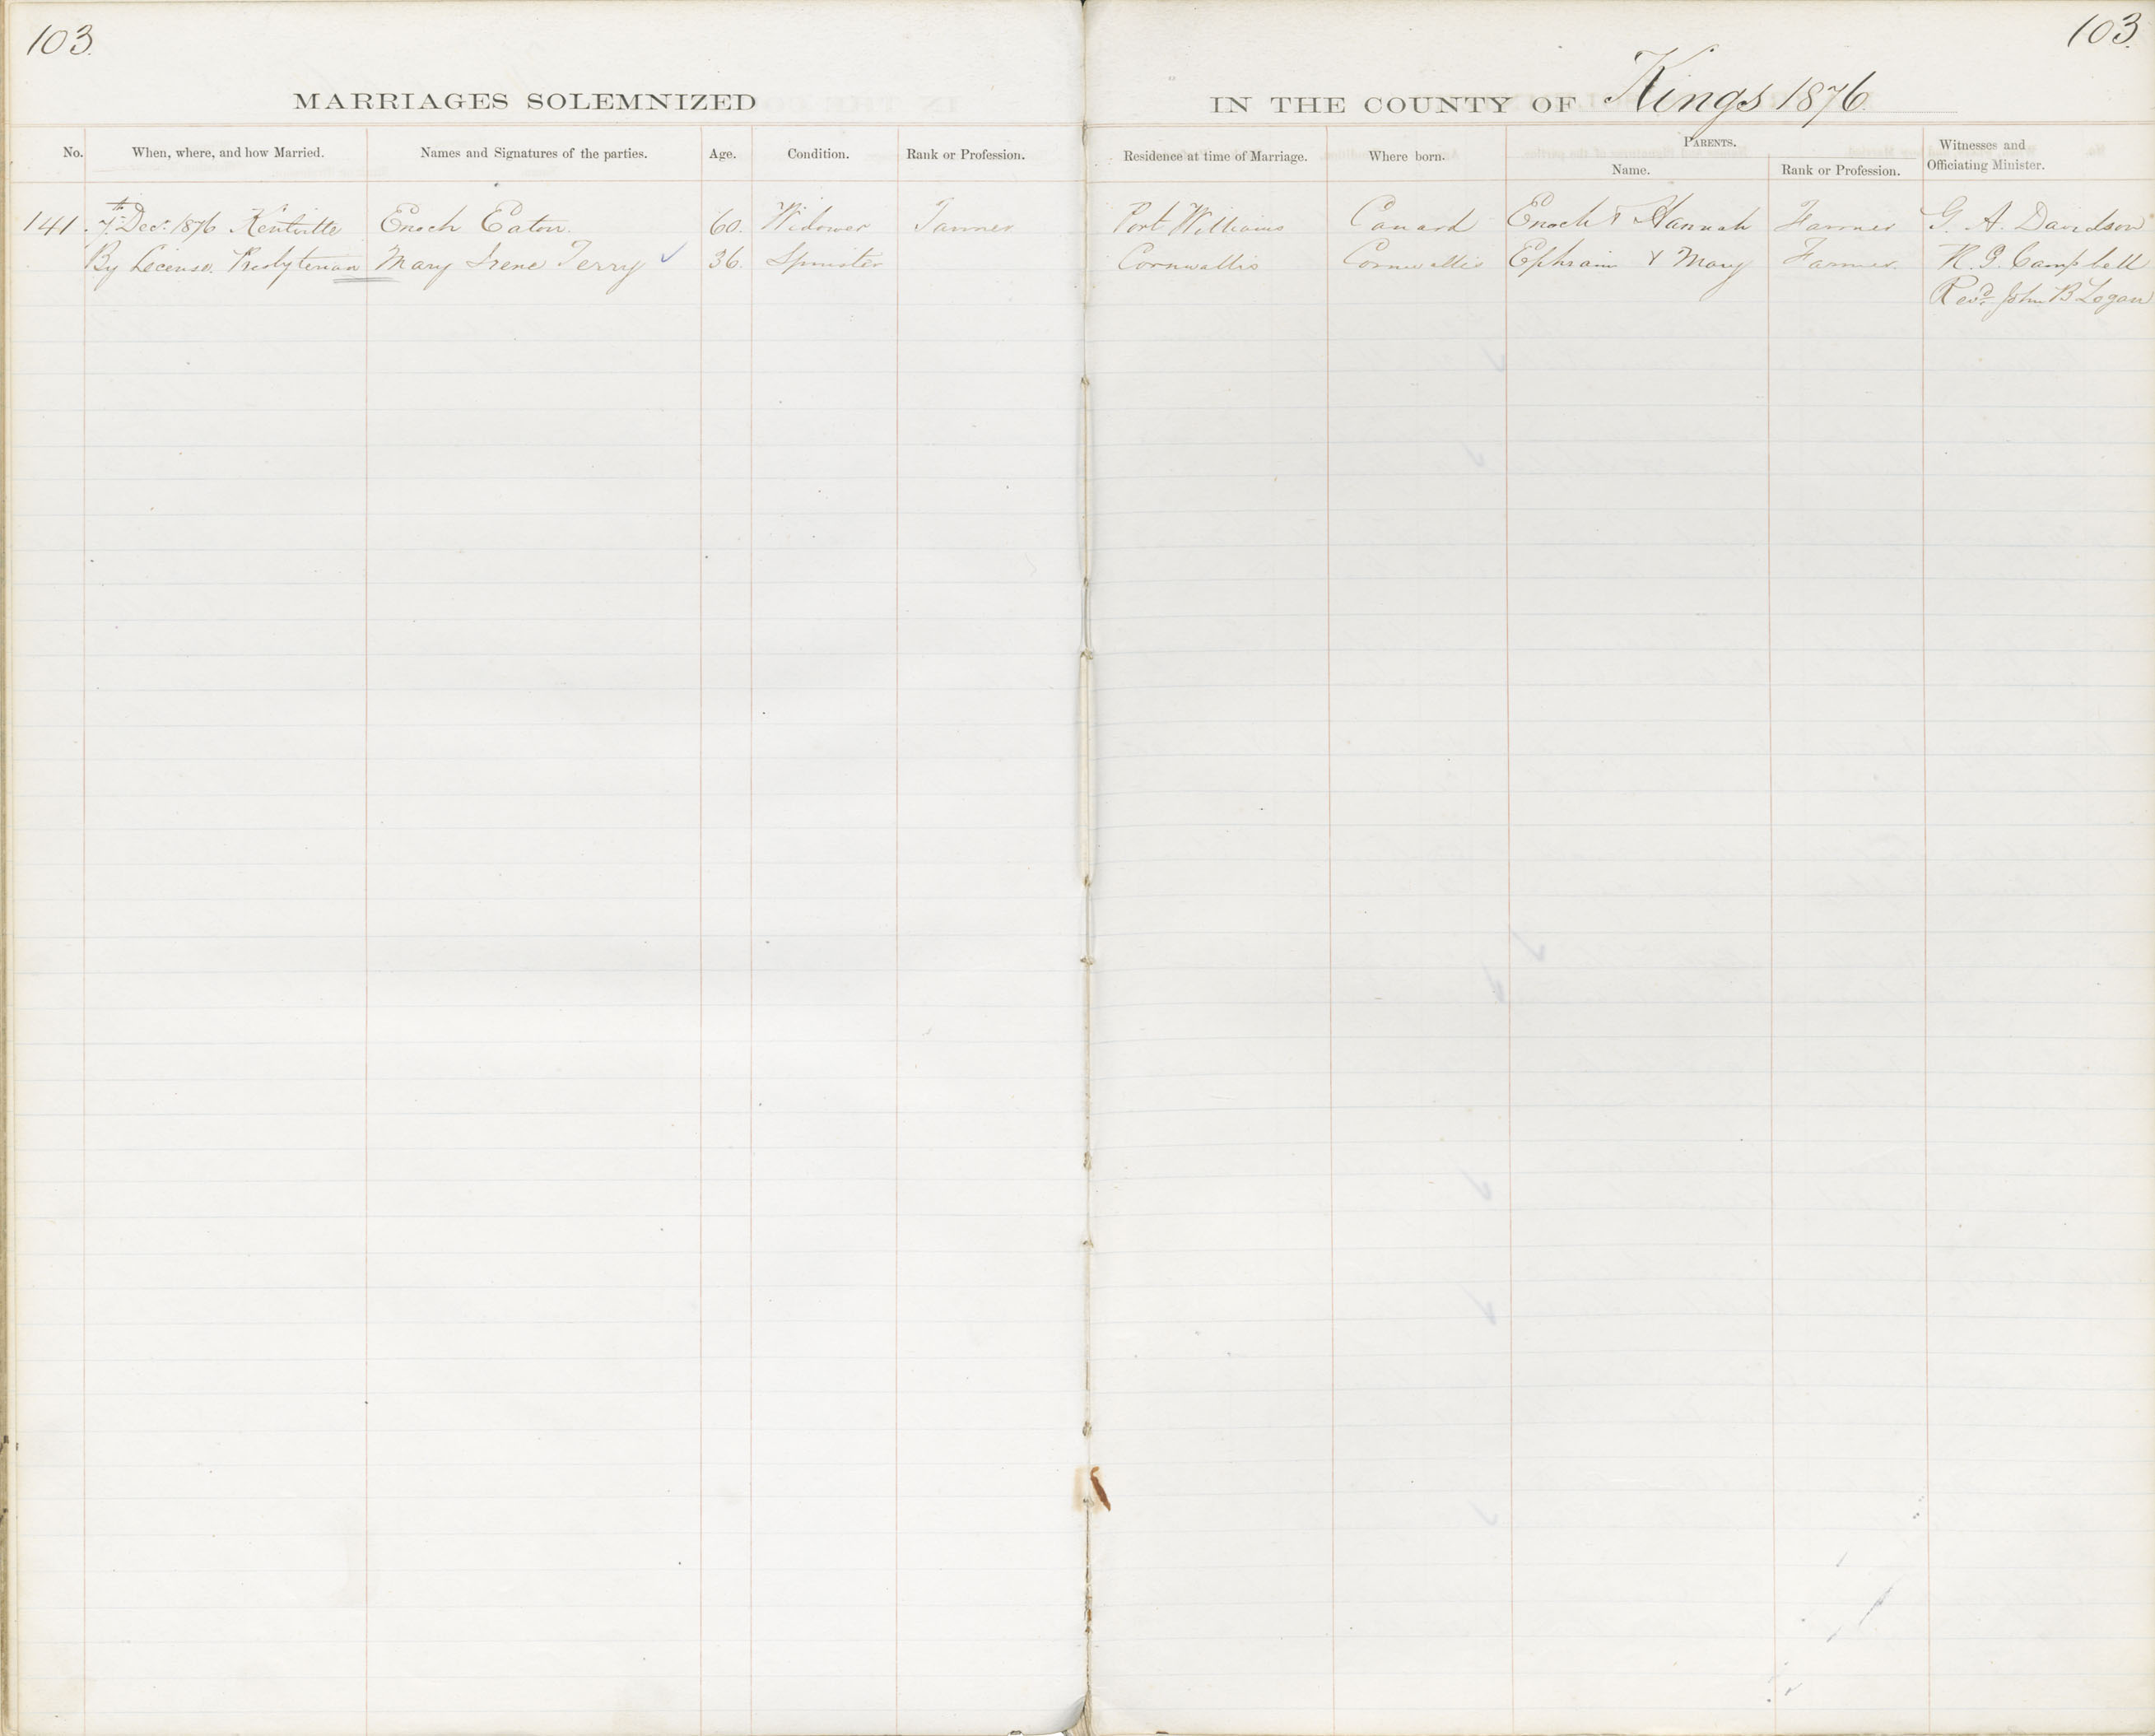 103.
103.
MARRIAGES SOLEMNIZED
IN THE COUNTY OF Kings 1876.
No. When, where, and how Married. Names and Signatures of the parties. Age. Condition. Rank or Profession. Residence at time of Marriage. Where born. PARENTS. Witnesses and
Name. Rank or Profession. Officiating Minister.
141. 7th Decr. 1876 Kentville Enoch Eaton. 60. Widower Tanner Port Williams Canard Enoch & Hannah Farmer G. A. Davidson
By License. Presbyterian Mary Irene Terry ✓ 36. Spinster Cornwallis Cornwallis Ephraim & Mary Farmer. Campbell
Revd. John B Logan